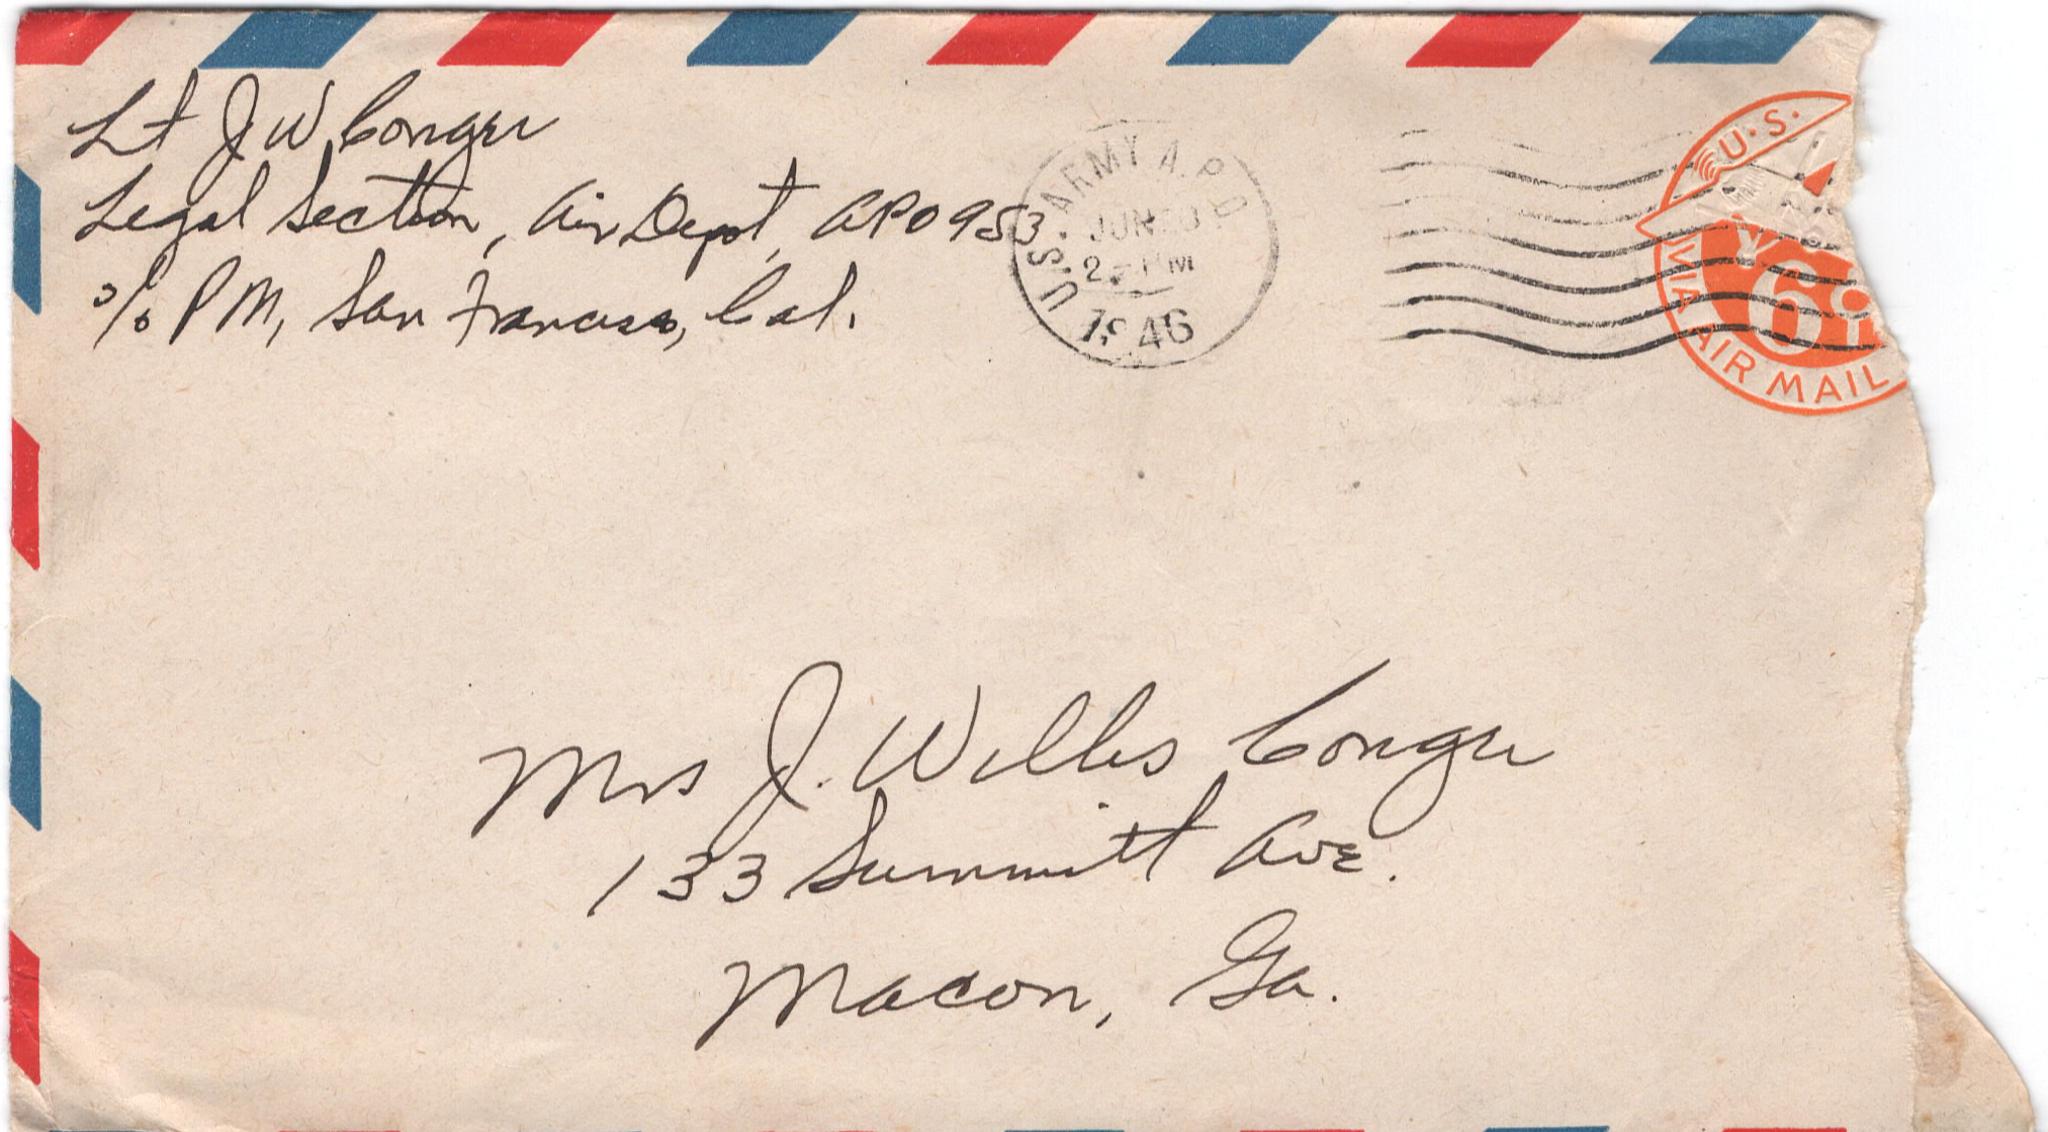 Lt J W Conger
Legal Section, Air Depot, APO 953
c/o PM, San Francisco, Cal.
U.S. ARMY A.P.O
JUN
1946
U.S.
6¢
VIA AIR MAIL
Mrs J. Willis Conger
133 Summitt Ave.
Macon, Ga.